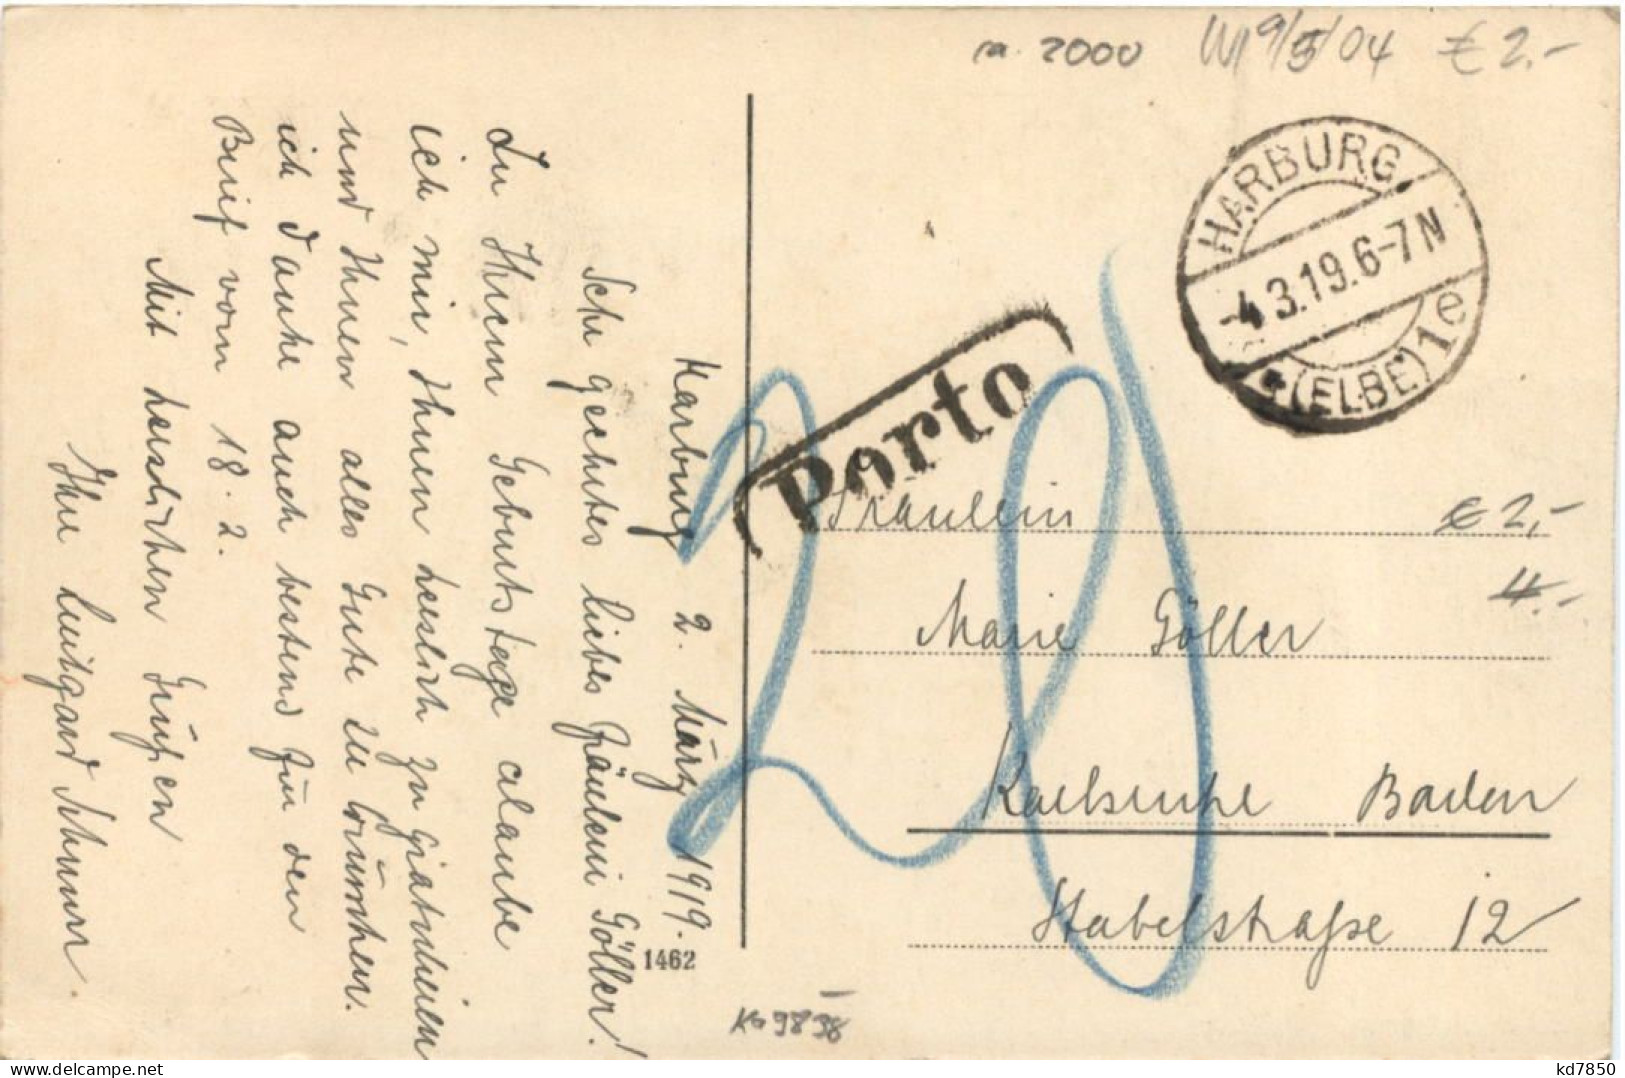 Harburg 2. März 1919.
Sehr geehrtes liebes Fräulein Göller!
Zu Ihrem Geburtstage erlaube
ich mir, Ihnen herzlich zu gratulieren
und Ihnen alles Gute zu wünschen.
ich danke auch bestens für den
Brief vom 18. 2.
Mit herzlichen Grüßen
Ihre Luitgard Schnurr.
1462
ca. 2000
9/5/04 € 2.-
HARBURG
-4.3.19.6-7N
*(ELBE)1e
Porto
20
Fräulein
€ 2,-
Marie Göller
4.-
Karlsruhe Baden
Stabelstraße 12
kd7850